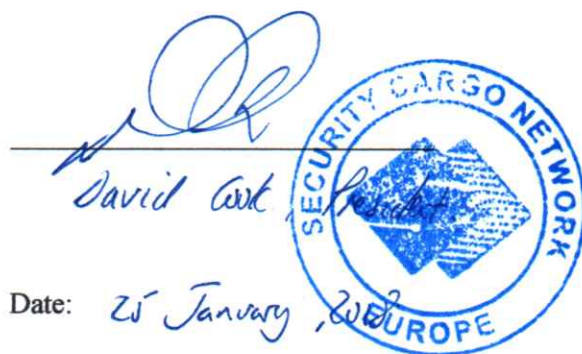 David Cook, President
Date: 25 January, 20
SECURITY CARGO NETWORK
EUROPE